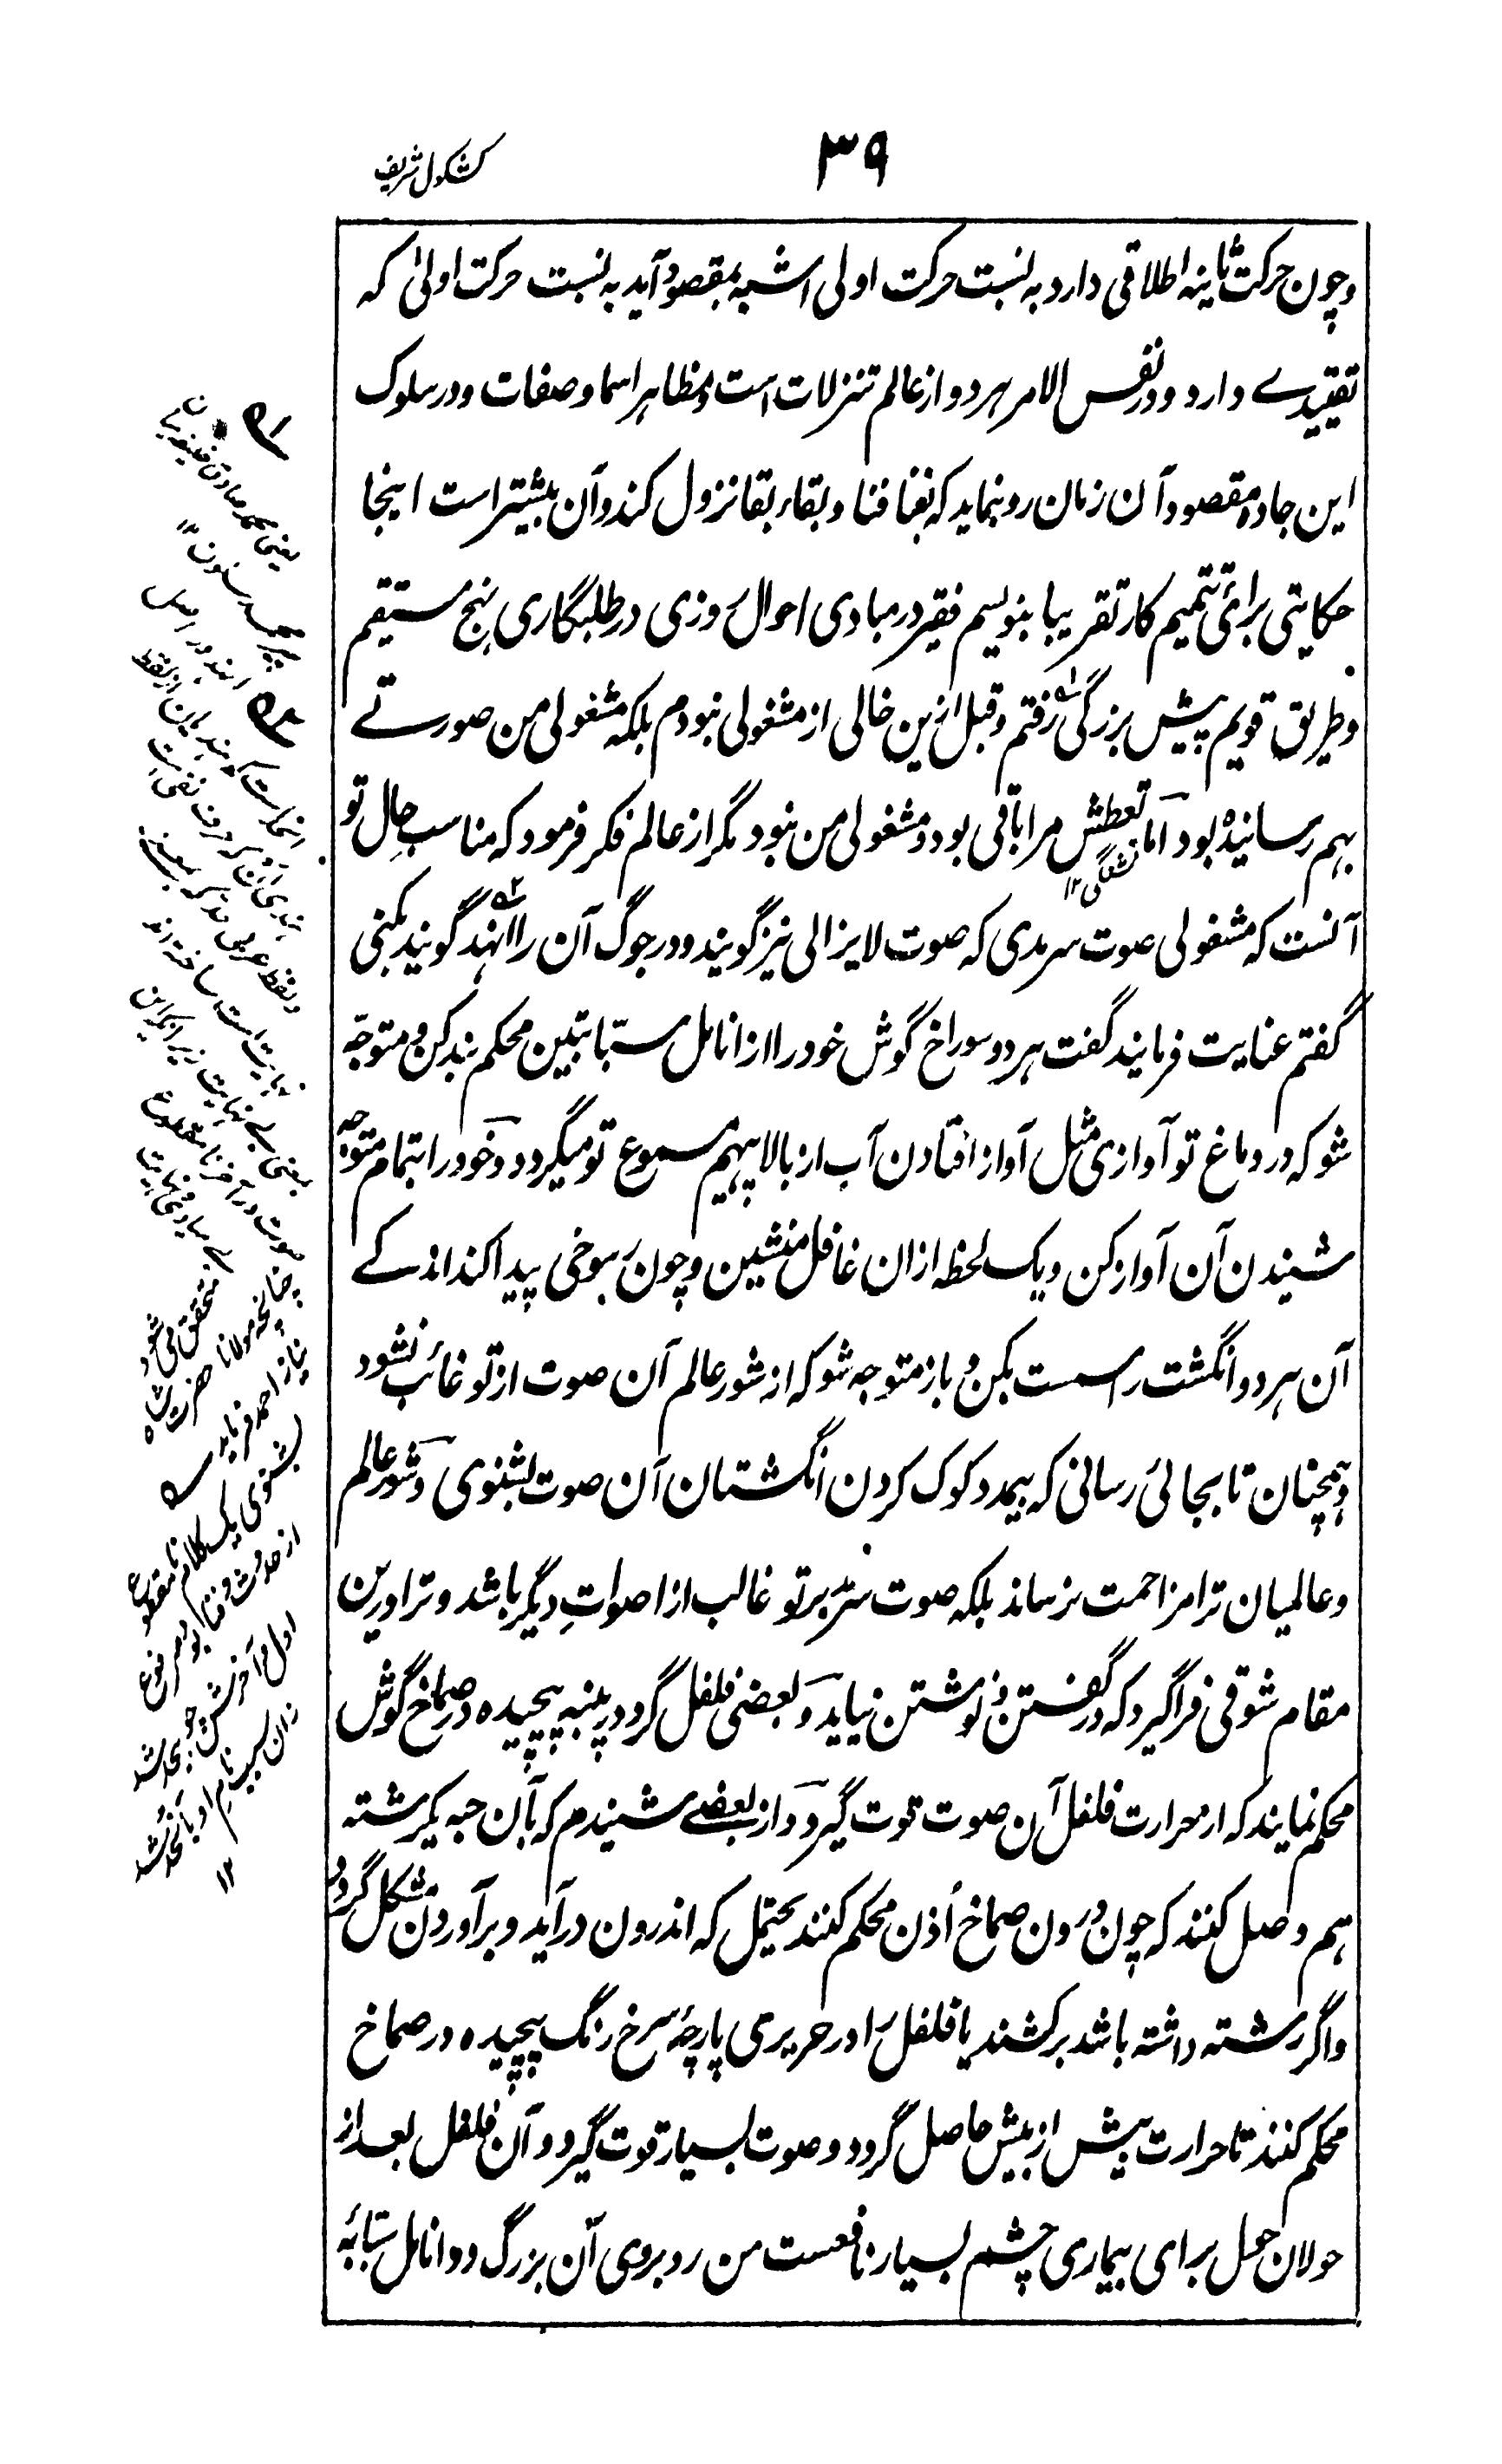 ۳۹
کشکول شریف
وچون حرکت ثانیه اطلاقی دارد به نسبت حرکت اولی اشبه بمقصود آید به نسبت حرکت اولیٰ که
تقییدے دارد ودر نفس الامر هردو از عالم تنزلات است ومظاهر اسما وصفات ودر سلوک
این جاده مقصود آن زمان رو نماید که بفنا فنا و بقاء بقا نزول کند وآن بیشتر است اینجا
حکایتی برائ تتمیم کار تقریبا بنویسم فقیر در مبادی احوال روزی در طلبگاری نهج مستقیم
وطریق قویم پیش بزرگی رفتم وقبل ازین خالی از مشغولی نبودم بلکه مشغولی من صورتے
بهم رسانیده بود اما تعطش مرا باقی بود ومشغولی من نبود مگر از عالم فکر فرمود که مناسب حالِ تو
تشنگی ۱۲
آنست که مشغولی صوت سرمدی که صوت لایزالی نیز گویند ودر جوگ آن را انهد گویند بکنی
گفتم عنایت فرمایند گفت هر دو سوراخ گوش خود را از انامل سبّابتین محکم بند کن و متوجّه
شو که در دماغ تو آوازی مثل آواز افتادن آب از بالا پیهم مسموع تو میگردد وخود را بتمام متوجه
شنیدن آن آواز کن ویک لحظه ازان غافل منشین وچون رسوخی پیدا کند اندکے
آن هر دو انگشت را سست بکن و باز متوجه شو که از شور عالم آن صوت از تو غائب نشود
وهمچنان تا بجائ رسانی که بیمدد کوک کردن انگشتان آن صوت بشنوی وشور عالم
وعالمیان ترا مزاحمت نرساند بلکه صوت سرمد برتو غالب از اصواتِ دیگر باشد وترا درین
مقام شوقی فرا گیرد که در گفتن و نوشتن نیاید وبعضی فلفل گرد در پنبه پیچیده در صماخ گوش
محکم نمایند که از حرارت فلفل آن صوت قوت گیرد واز بعضے شنیدم که بآن حبه یک رشته
هم وصل کنند که چون درون صماخ اُذن محکم کنند یحتمل که اندرون درآید وبرآوردن مشکل گردد
واگر رشته داشته باشد برکشند یا فلفل را در حریری پارچهٔ سرخ رنگ پیچیده در صماخ
محکم کنند تا حرارت بیش از بیش حاصل گردد وصوت بسیار قوت گیرد وآن فلفل بعد از
حولان حول برای بیماری چشم بسیار نافعست من روبروی آن بزرگ دو انامل سبّابه
چنانچه مولانا حضرت شاه
نیاز احمد فرماید
بشنوی یک کلام نامقطوع
از حدوث و فنا بود مرفوع
اول و آخرش چو بیحد شد
زان سبب نام او بآنحد شد
۱۲